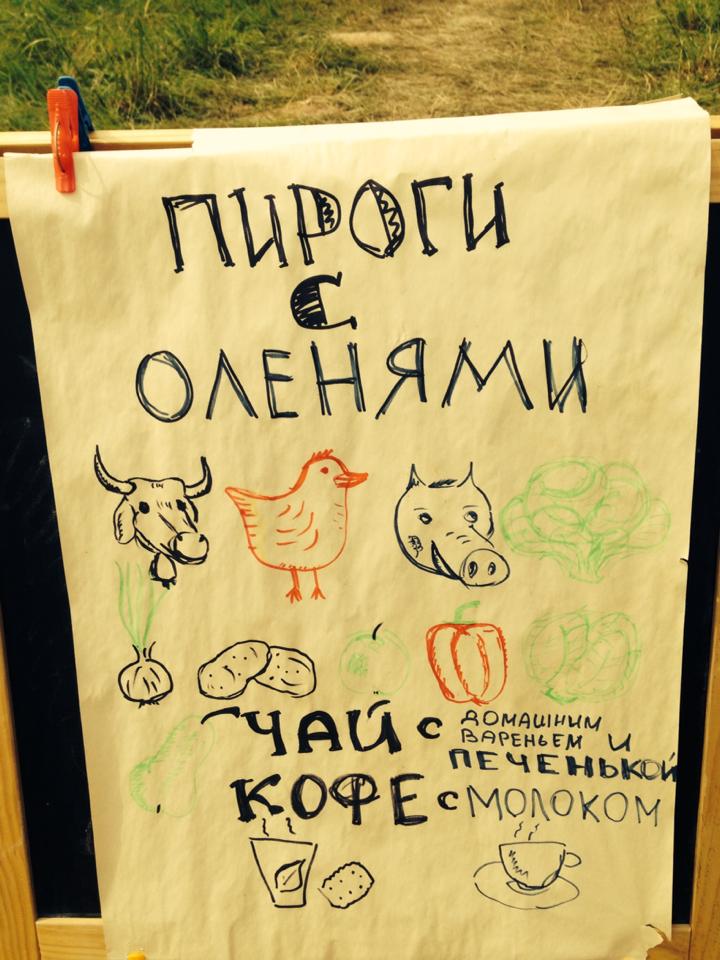 ПИРОГИ
С
ОЛЕНЯМИ
ЧАЙ С ДОМАШНИМ
ВАРЕНЬЕМ И
ПЕЧЕНЬКОЙ
КОФЕ С МОЛОКОМ